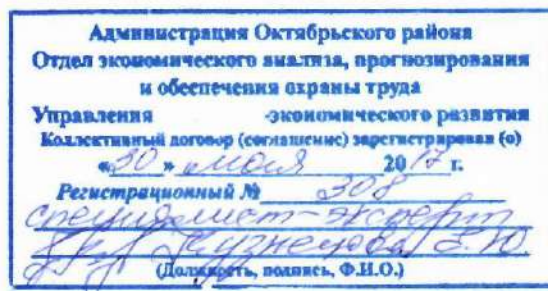 Администрация Октябрьского района
Отдел экономического анализа, прогнозирования
и обеспечения охраны труда
Управления -экономического развития
Коллективный договор (соглашение) зарегистрирован (о)
«30» мая 2017 г.
Регистрационный № 308
специалист-эксперт
Кузнецова Е.Ю
(Должность, подпись, Ф.И.О.)